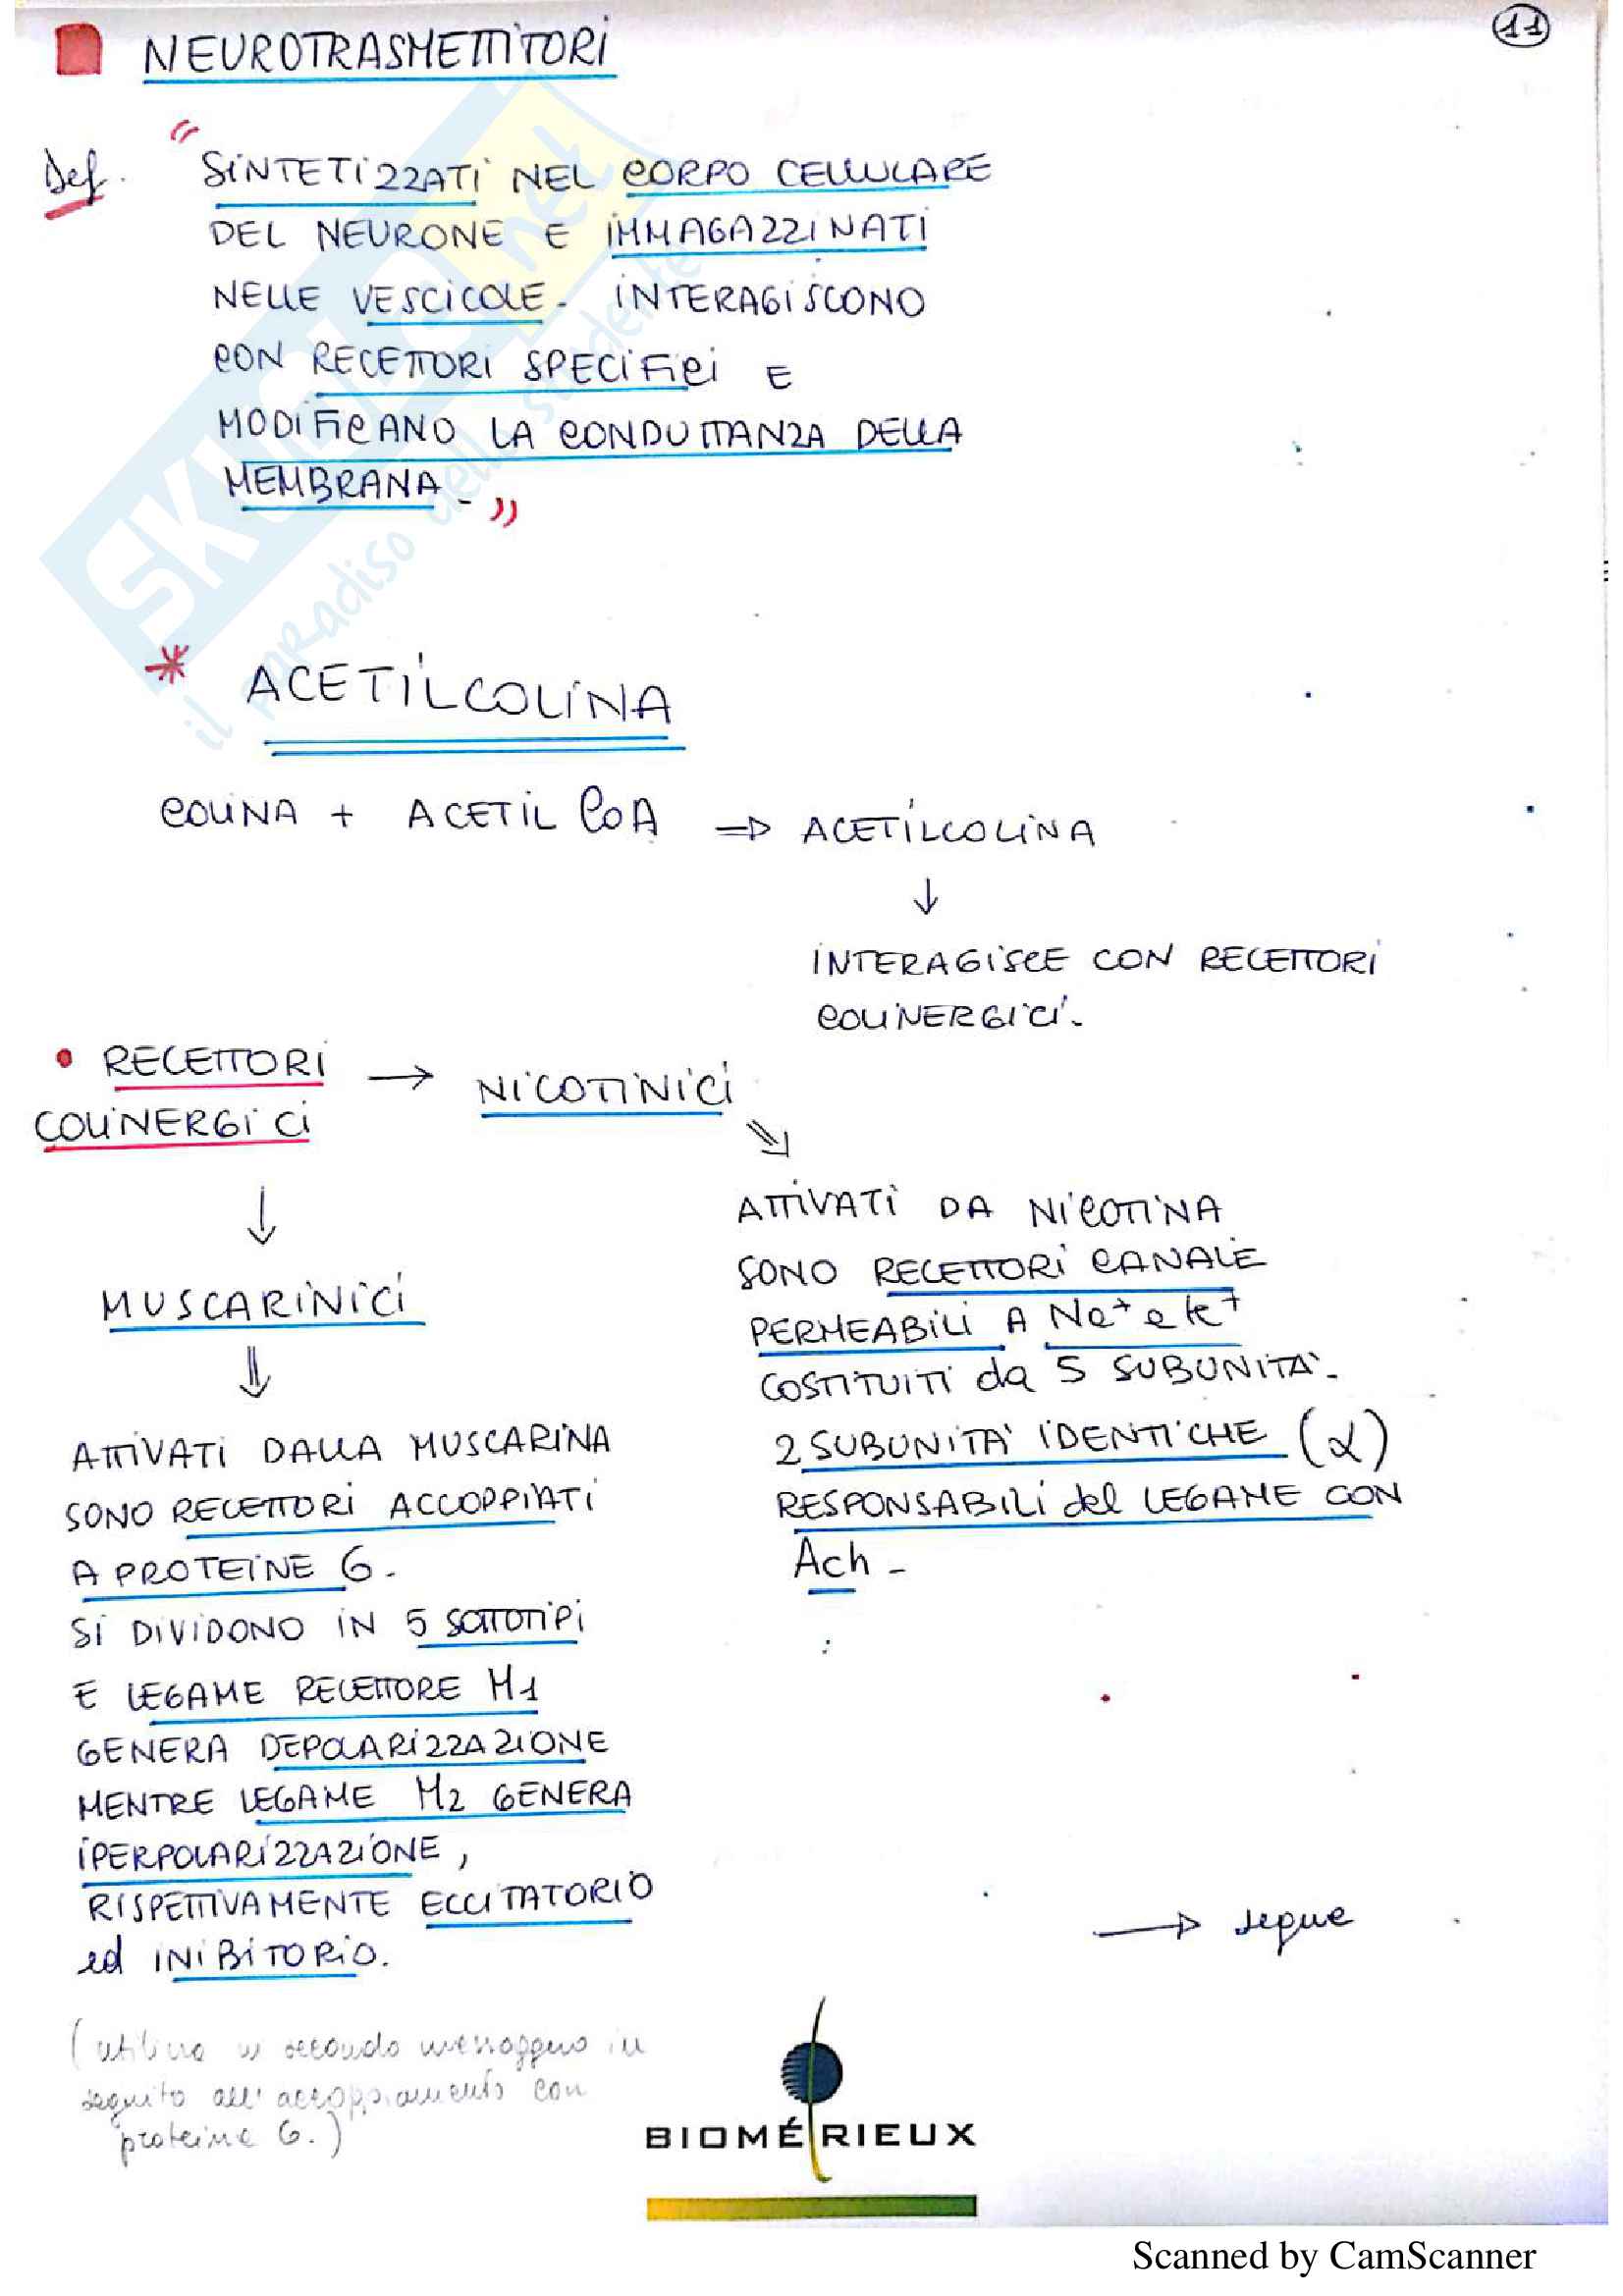 11
NEUROTRASMETTITORI
Def. "SINTETIZZATI NEL CORPO CELLULARE
DEL NEURONE E IMMAGAZZINATI
NELLE VESCICOLE. INTERAGISCONO
CON RECETTORI SPECIFICI E
MODIFICANO LA CONDUTTANZA DELLA
MEMBRANA."
SKUOLA.net
il paradiso dello studente
* ACETILCOLINA
COLINA + ACETIL CoA => ACETILCOLINA
↓
INTERAGISCE CON RECETTORI
COLINERGICI.
• RECETTORI → NICOTINICI
COLINERGICI
↓
MUSCARINICI
⇓
ATTIVATI DALLA MUSCARINA
SONO RECETTORI ACCOPPIATI
A PROTEINE G.
SI DIVIDONO IN 5 SOTTOTIPI
E LEGAME RECETTORE M1
GENERA DEPOLARIZZAZIONE
MENTRE LEGAME M2 GENERA
IPERPOLARIZZAZIONE,
RISPETTIVAMENTE ECCITATORIO
ed INIBITORIO.
⇘
ATTIVATI DA NICOTINA
SONO RECETTORI CANALE
PERMEABILI A Na+ e K+
COSTITUITI da 5 SUBUNITA'.
2 SUBUNITA' IDENTICHE (α)
RESPONSABILI del LEGAME CON
Ach.
→ segue
( secondo messaggero in
seguito all'accoppiamento con
proteine G.)
BIOMÉRIEUX
Scanned by CamScanner